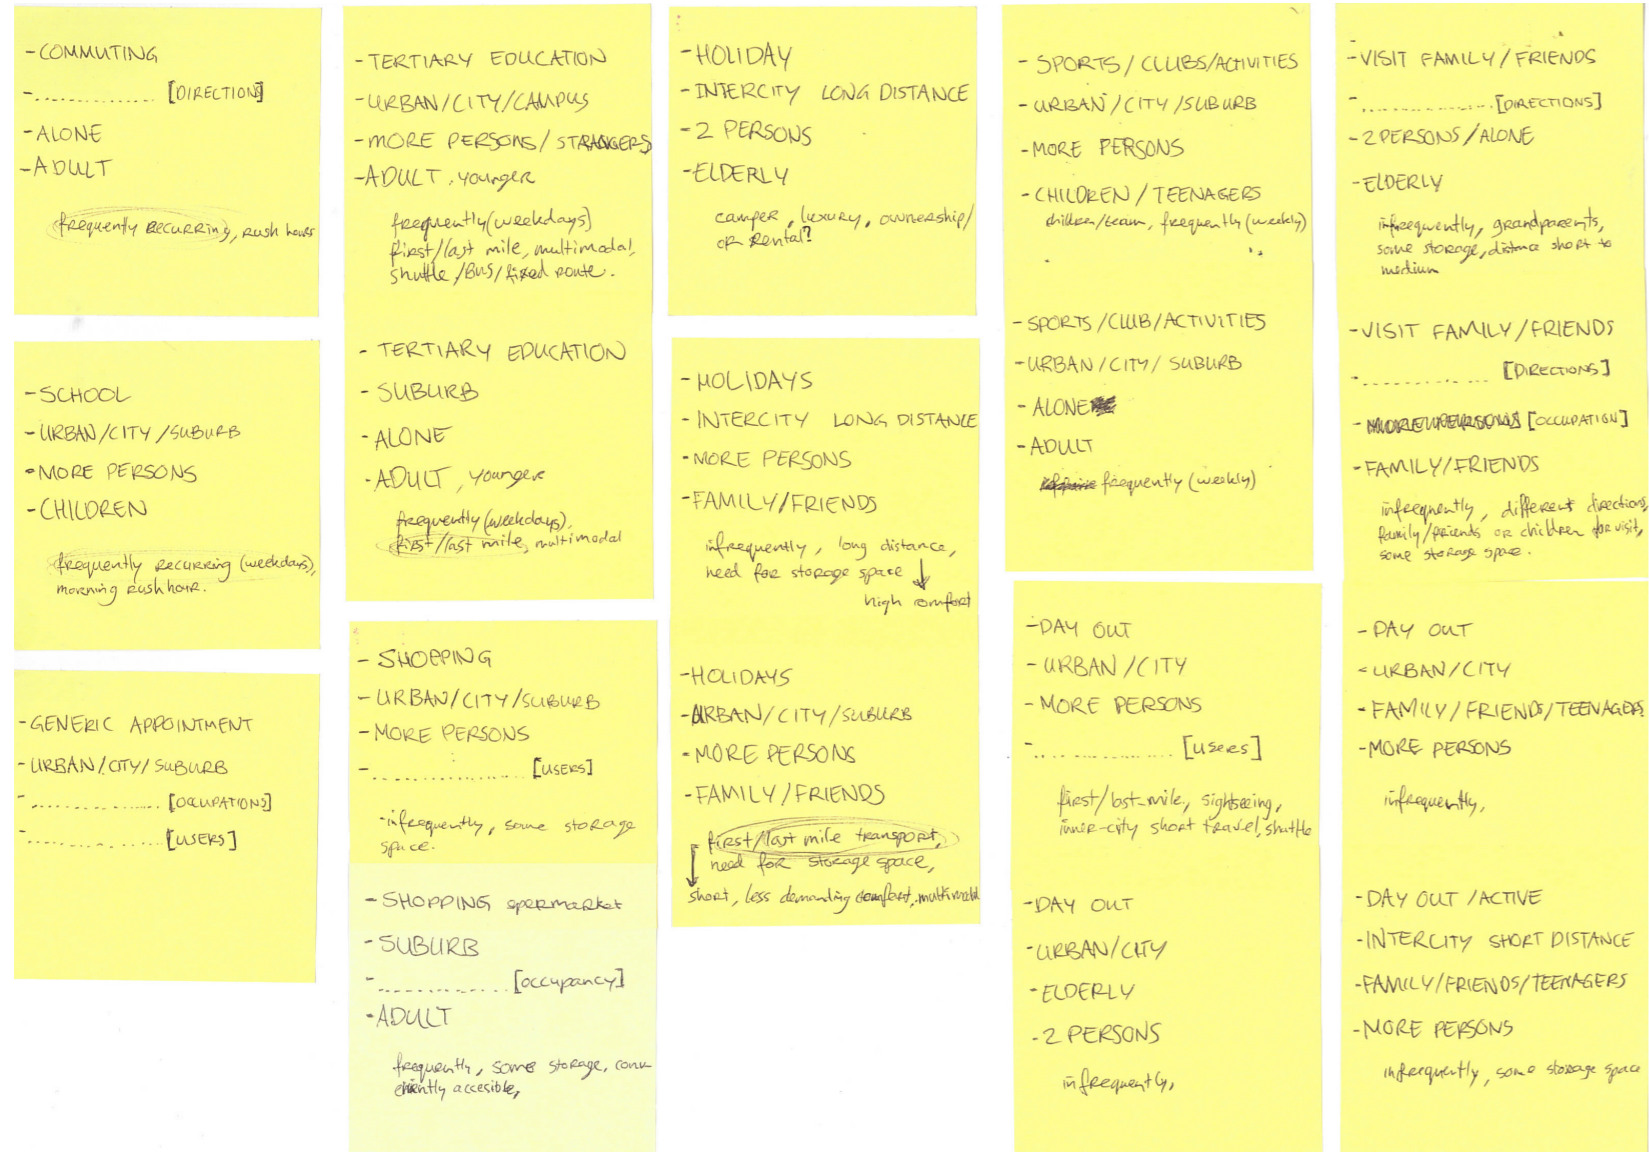 -COMMUTING
-.............. [DIRECTIONS]
-ALONE
-ADULT
frequently RECURRING, RUSH hours
-SCHOOL
-URBAN/CITY/SUBURB
-MORE PERSONS
-CHILDREN
frequently RECURRING (weekdays),
morning RUSH hour.
-GENERIC APPOINTMENT
-URBAN/CITY/SUBURB
-............... [OCCUPATIONS]
-............... [USERS]
-TERTIARY EDUCATION
-URBAN/CITY/CAMPUS
-MORE PERSONS/STRANGERS
-ADULT, younger
frequently (weekdays)
first/last mile, multimodal,
shuttle/BUS/fixed route.
-TERTIARY EDUCATION
-SUBURB
-ALONE
-ADULT, younger
frequently (weekdays),
first/last mile, multimodal
-SHOPPING
-URBAN/CITY/SUBURB
-MORE PERSONS
-................... [USERS]
-infrequently, some storage
space.
-SHOPPING spermarket
-SUBURB
-.............. [occupancy]
-ADULT
frequently, some storage, conv
eniently accesible,
-HOLIDAY
-INTERCITY LONG DISTANCE
-2 PERSONS
-ELDERLY
camper, luxury, ownership/
or Rental?
-HOLIDAYS
-INTERCITY LONG DISTANCE
-MORE PERSONS
-FAMILY/FRIENDS
infrequently, long distance,
need for storage space
high comfort
-HOLIDAYS
-URBAN/CITY/SUBURB
-MORE PERSONS
-FAMILY/FRIENDS
first/last mile transport,
need for storage space,
short, less demanding comfort, multimodal
-SPORTS/CLUBS/ACTIVITIES
-URBAN/CITY/SUBURB
-MORE PERSONS
-CHILDREN/TEENAGERS
children/team, frequently (weekly)
-SPORTS/CLUB/ACTIVITIES
-URBAN/CITY/SUBURB
-ALONE
-ADULT
frequently (weekly)
-DAY OUT
-URBAN/CITY
-MORE PERSONS
-................. [users]
first/last-mile, sightseeing,
inner-city short travel, shuttle
-DAY OUT
-URBAN/CITY
-ELDERLY
-2 PERSONS
infrequently,
-VISIT FAMILY/FRIENDS
-................ [DIRECTIONS]
-2PERSONS/ALONE
-ELDERLY
infrequently, grandparents,
some storage, distance short to
medium
-VISIT FAMILY/FRIENDS
-.............. [DIRECTIONS]
-MORE PERSONS [OCCUPATION]
-FAMILY/FRIENDS
infrequently, different directions,
family/friends or children for visit,
some storage space.
-DAY OUT
-URBAN/CITY
-FAMILY/FRIENDS/TEENAGERS
-MORE PERSONS
infrequently,
-DAY OUT/ACTIVE
-INTERCITY SHORT DISTANCE
-FAMILY/FRIENDS/TEENAGERS
-MORE PERSONS
infrequently, some storage space